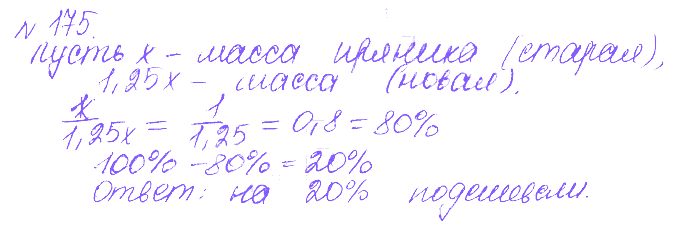 № 175.
Пусть x – масса пряника (старая),
1,25x – масса (новая).
x/1,25x = 1/1,25 = 0,8 = 80%
100% – 80% = 20%
Ответ: на 20% подешевели.